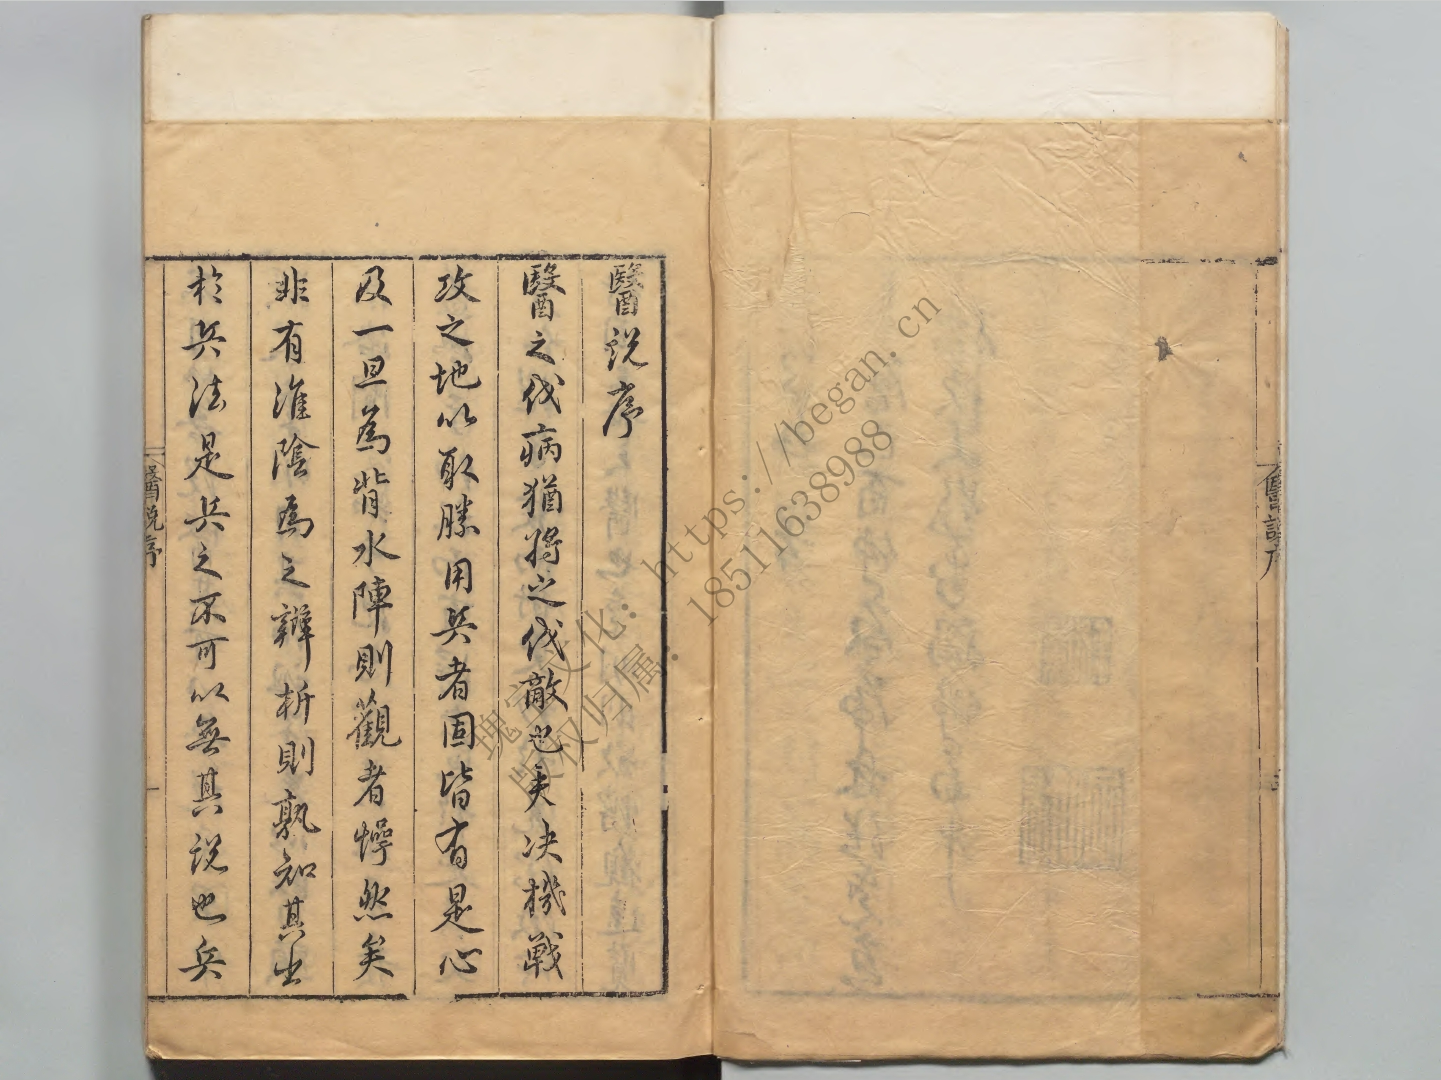 醫说序
醫之伐病猶將之伐敵也夫决機戰
攻之地以取勝用兵者固皆有是心
及一旦為背水陣則觀者愕然矣
非有淮陰為之辨析則孰知其出
於兵法是兵之不可以無其说也兵
醫说序
瑰宝文化：https://began.cn
版权归属：18511638988